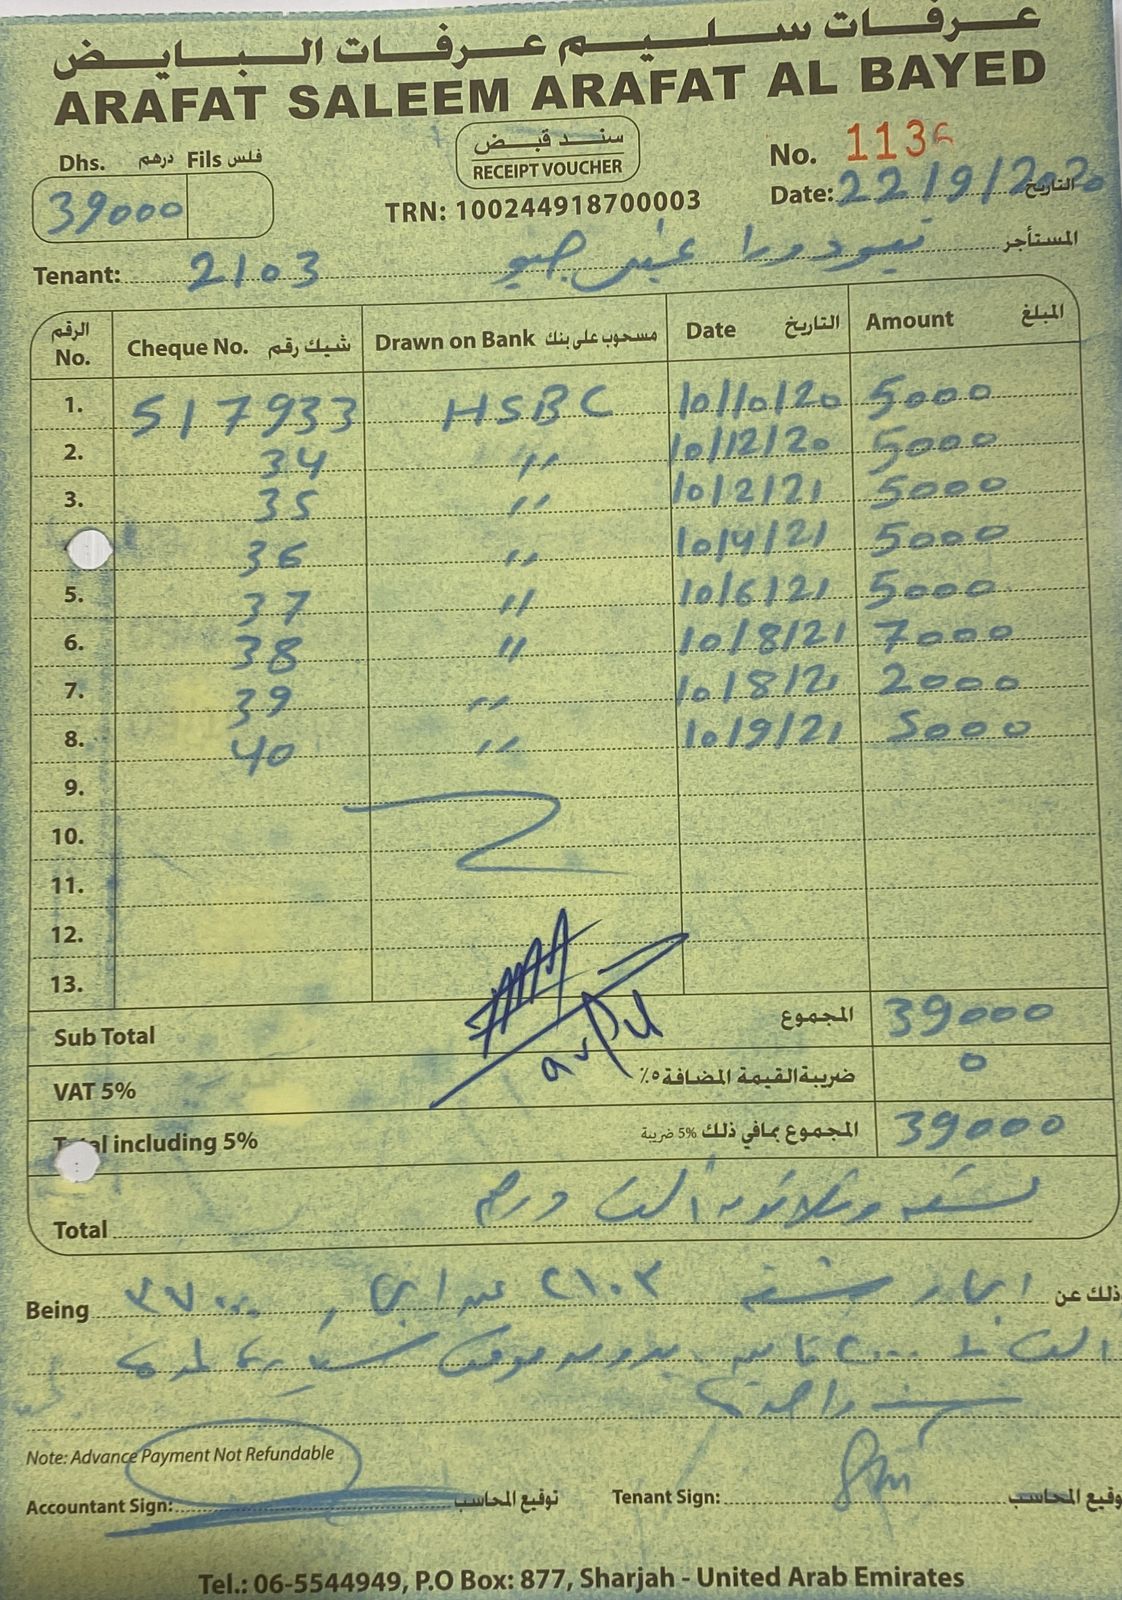 عرفات سليم عرفات البايض
ARAFAT SALEEM ARAFAT AL BAYED
Dhs. درهم Fils فلس
سند قبض
RECEIPT VOUCHER
No. 1136
39000
TRN: 100244918700003
Date: 22/9/2020 التاريخ
Tenant: 2103 المستأجر
الرقم No. Cheque No. شيك رقم Drawn on Bank مسحوب على بنك Date التاريخ Amount المبلغ
1. 517933 HSBC 10/10/20 5000
2. 34 " 10/12/20 5000
3. 35 " 10/2/21 5000
36 " 10/4/21 5000
5. 37 " 10/6/21 5000
6. 38 " 10/8/21 7000
7. 39 " 10/8/21 2000
8. 40 " 10/9/21 5000
9.
10.
11.
12.
13.
Sub Total المجموع 39000
VAT 5% ضريبة القيمة المضافة ٥٪ 0
Total including 5% المجموع بمافي ذلك 5% ضريبة 39000
Total تسعة وثلاثون ألف درهم
Being ٢١٠٣ ٣٧٠٠٠ ذلك عن
٢٠٠٠ تامين
سنة واحدة
Note: Advance Payment Not Refundable
Accountant Sign: توقيع المحاسب Tenant Sign: توقيع المحاسب
Tel.: 06-5544949, P.O Box: 877, Sharjah - United Arab Emirates